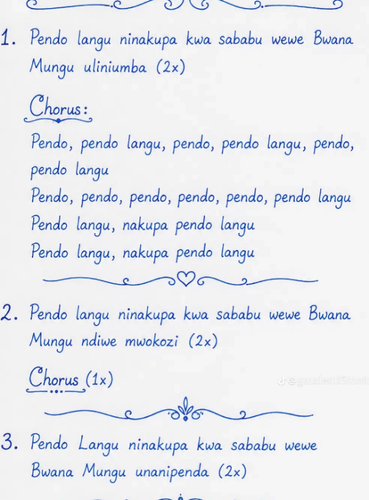 1. Pendo langu ninakupa kwa sababu wewe Bwana
Mungu uliniumba (2x)
Chorus:
Pendo, pendo langu, pendo, pendo langu, pendo,
pendo langu
Pendo, pendo, pendo, pendo, pendo, pendo langu
Pendo langu, nakupa pendo langu
Pendo langu, nakupa pendo langu
2. Pendo langu ninakupa kwa sababu wewe Bwana
Mungu ndiwe mwokozi (2x)
Chorus (1x)
3. Pendo Langu ninakupa kwa sababu wewe
Bwana Mungu unanipenda (2x)